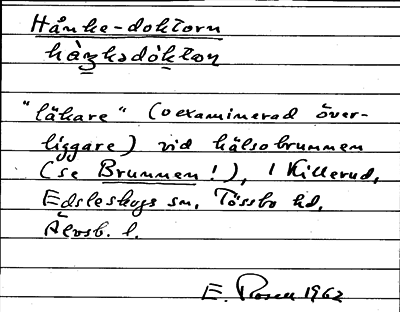 Hånke-doktorn
hàŋkədòktɷṇ
"läkare" (oexaminerad över-
liggare) vid hälsobrunnen
(se Brunnen!), i Killerud,
Edsleskogs sn, Tössbo hd,
Älvsb. l.
E. Rosen 1962